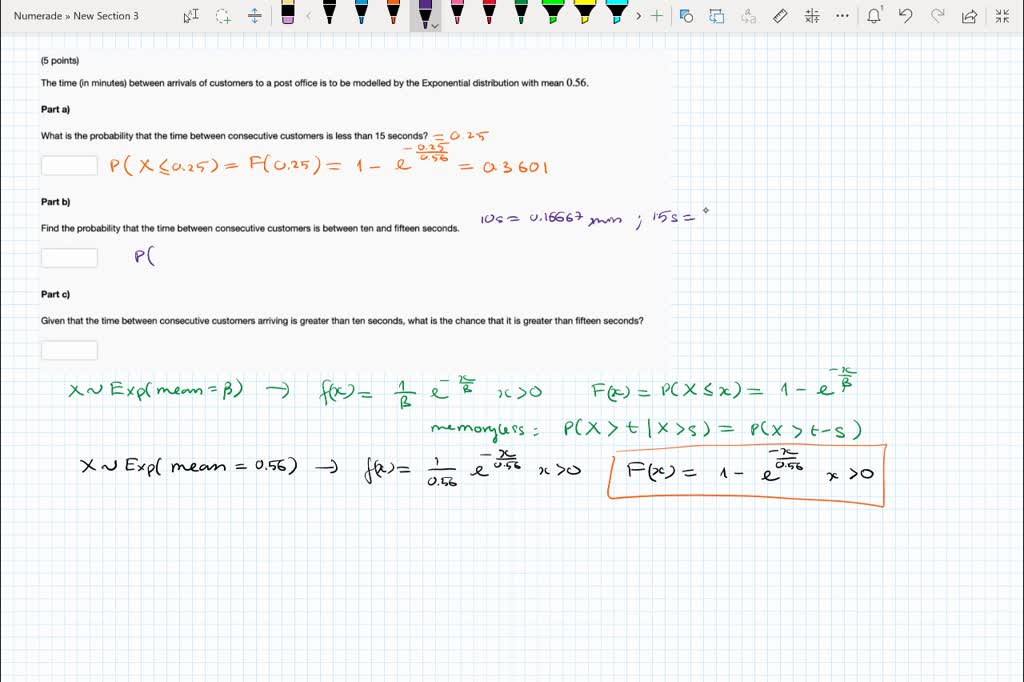 Numerade » New Section 3
(5 points)
The time (in minutes) between arrivals of customers to a post office is to be modelled by the Exponential distribution with mean 0.56.
Part a)
What is the probability that the time between consecutive customers is less than 15 seconds? = 0.25
P(X≤0.25) = F(0.25) = 1 - e^{-\frac{0.25}{0.56}} = 0.3601
Part b)
10s = 0.16667 min ; 15s =
Find the probability that the time between consecutive customers is between ten and fifteen seconds.
P(
Part c)
Given that the time between consecutive customers arriving is greater than ten seconds, what is the chance that it is greater than fifteen seconds?
X ~ Exp(mean = β) → f(x) = \frac{1}{β} e^{-\frac{x}{β}} x>0 F(x) = P(X≤x) = 1 - e^{-\frac{x}{β}}
memoryless: P(X>t|X>s) = P(X>t-s)
X ~ Exp(mean = 0.56) → f(x) = \frac{1}{0.56} e^{-\frac{x}{0.56}} x>0 F(x) = 1 - e^{-\frac{x}{0.56}} x>0